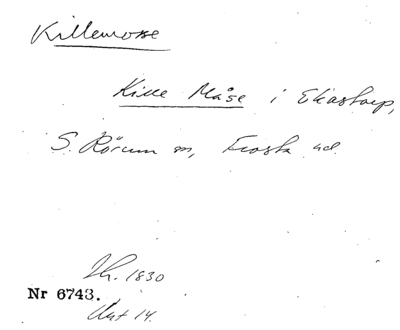 Killemosse
Kille Måse i Ekastorp,
S. Rörum sn, Frosta hd.
Th. 1830
Nr 6743.
Uut 14.